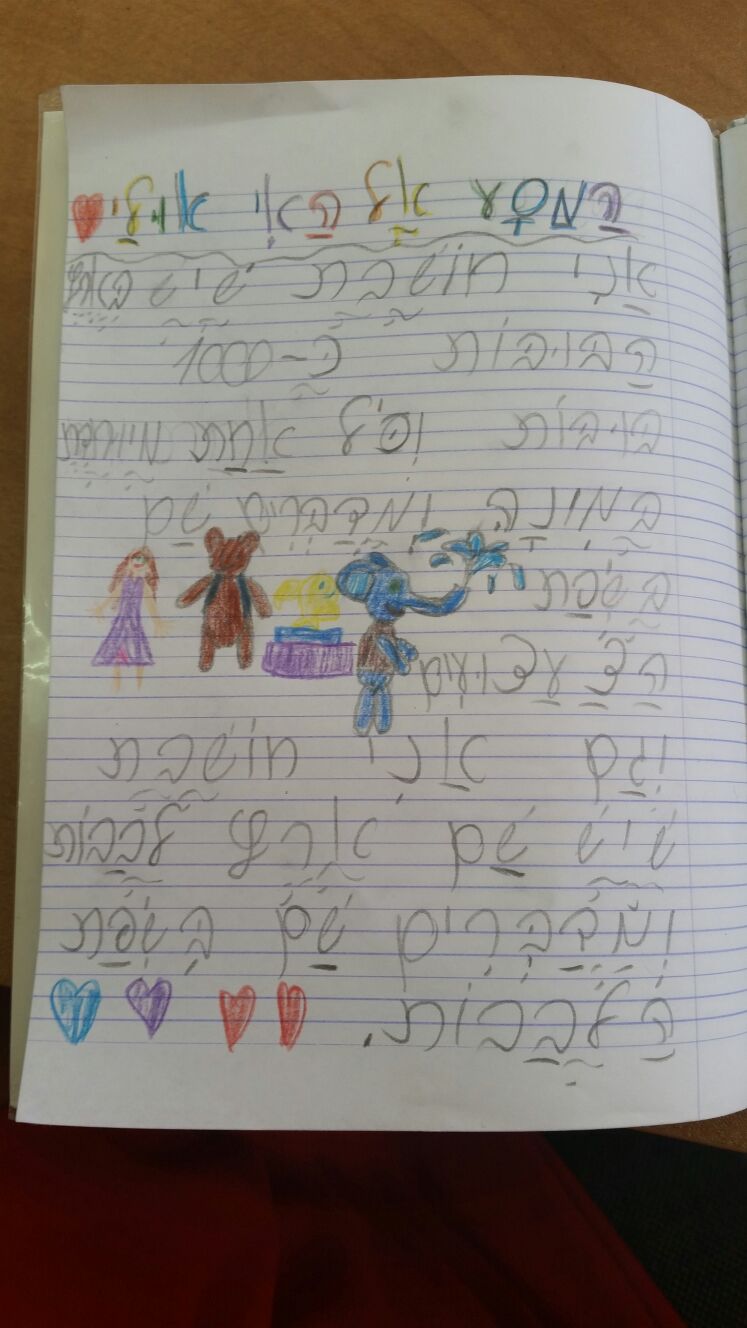 המסע אל האי אולי
אני חושבת שיש בארץ
הבובות כ-1000
בובות וכל אחת מיוחדת
במינה ומדברים שם
בשפת
הצעצועים
וגם אני חושבת
שיש שם ארץ לבבות
ומדברים שם בשפת
הלבבות.